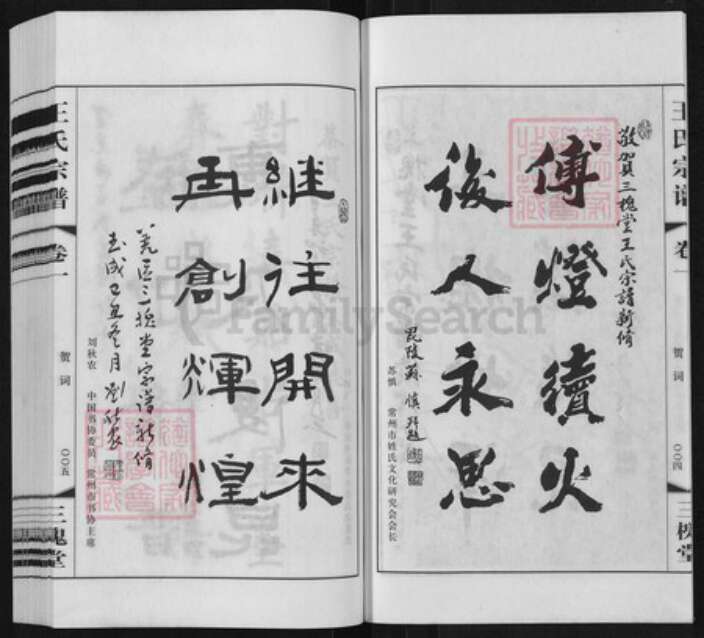 王氏宗谱
卷一
贺词
〇〇四
三槐堂
敬贺三槐堂王氏宗譜新脩
傳燈續火
後人永思
毘陵蘇慎拜題
苏慎 常州市姓氏文化研究会会长
继往開来
再創輝煌
三槐堂宗谱新脩
己丑冬月刘秋农
刘秋农 中国书协委员 常州市书协主席
王氏宗谱
卷一
贺词
〇〇五
三槐堂
FamilySearch